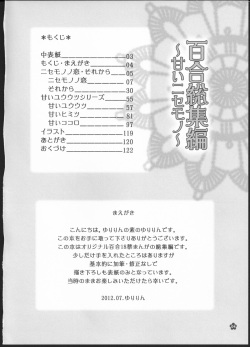 百合総集編
～甘いニセモノ～
＊もくじ＊
中表紙 03
もくじ・まえがき 04
ニセモノノ恋・それから 05
ニセモノノ恋 07
それから 30
甘いユウウツシリーズ 35
甘いユウウツ 57
甘いヒミツ 81
甘いココロ 97
イラスト 119
あとがき 121
おくづけ 122
まえがき
こんにちは。ゆりりんの素のゆりりんです。
この本をお手に取って下さりありがとうございます。
この本はオリジナル百合18禁まんがの総集編です。
少しだけ手を入れたところはありますが
基本的に加筆・修正なしで
描き下ろしも表紙のみとなっています。
当時のままお楽しみいただけたら幸いです。
2012.07.ゆりりん